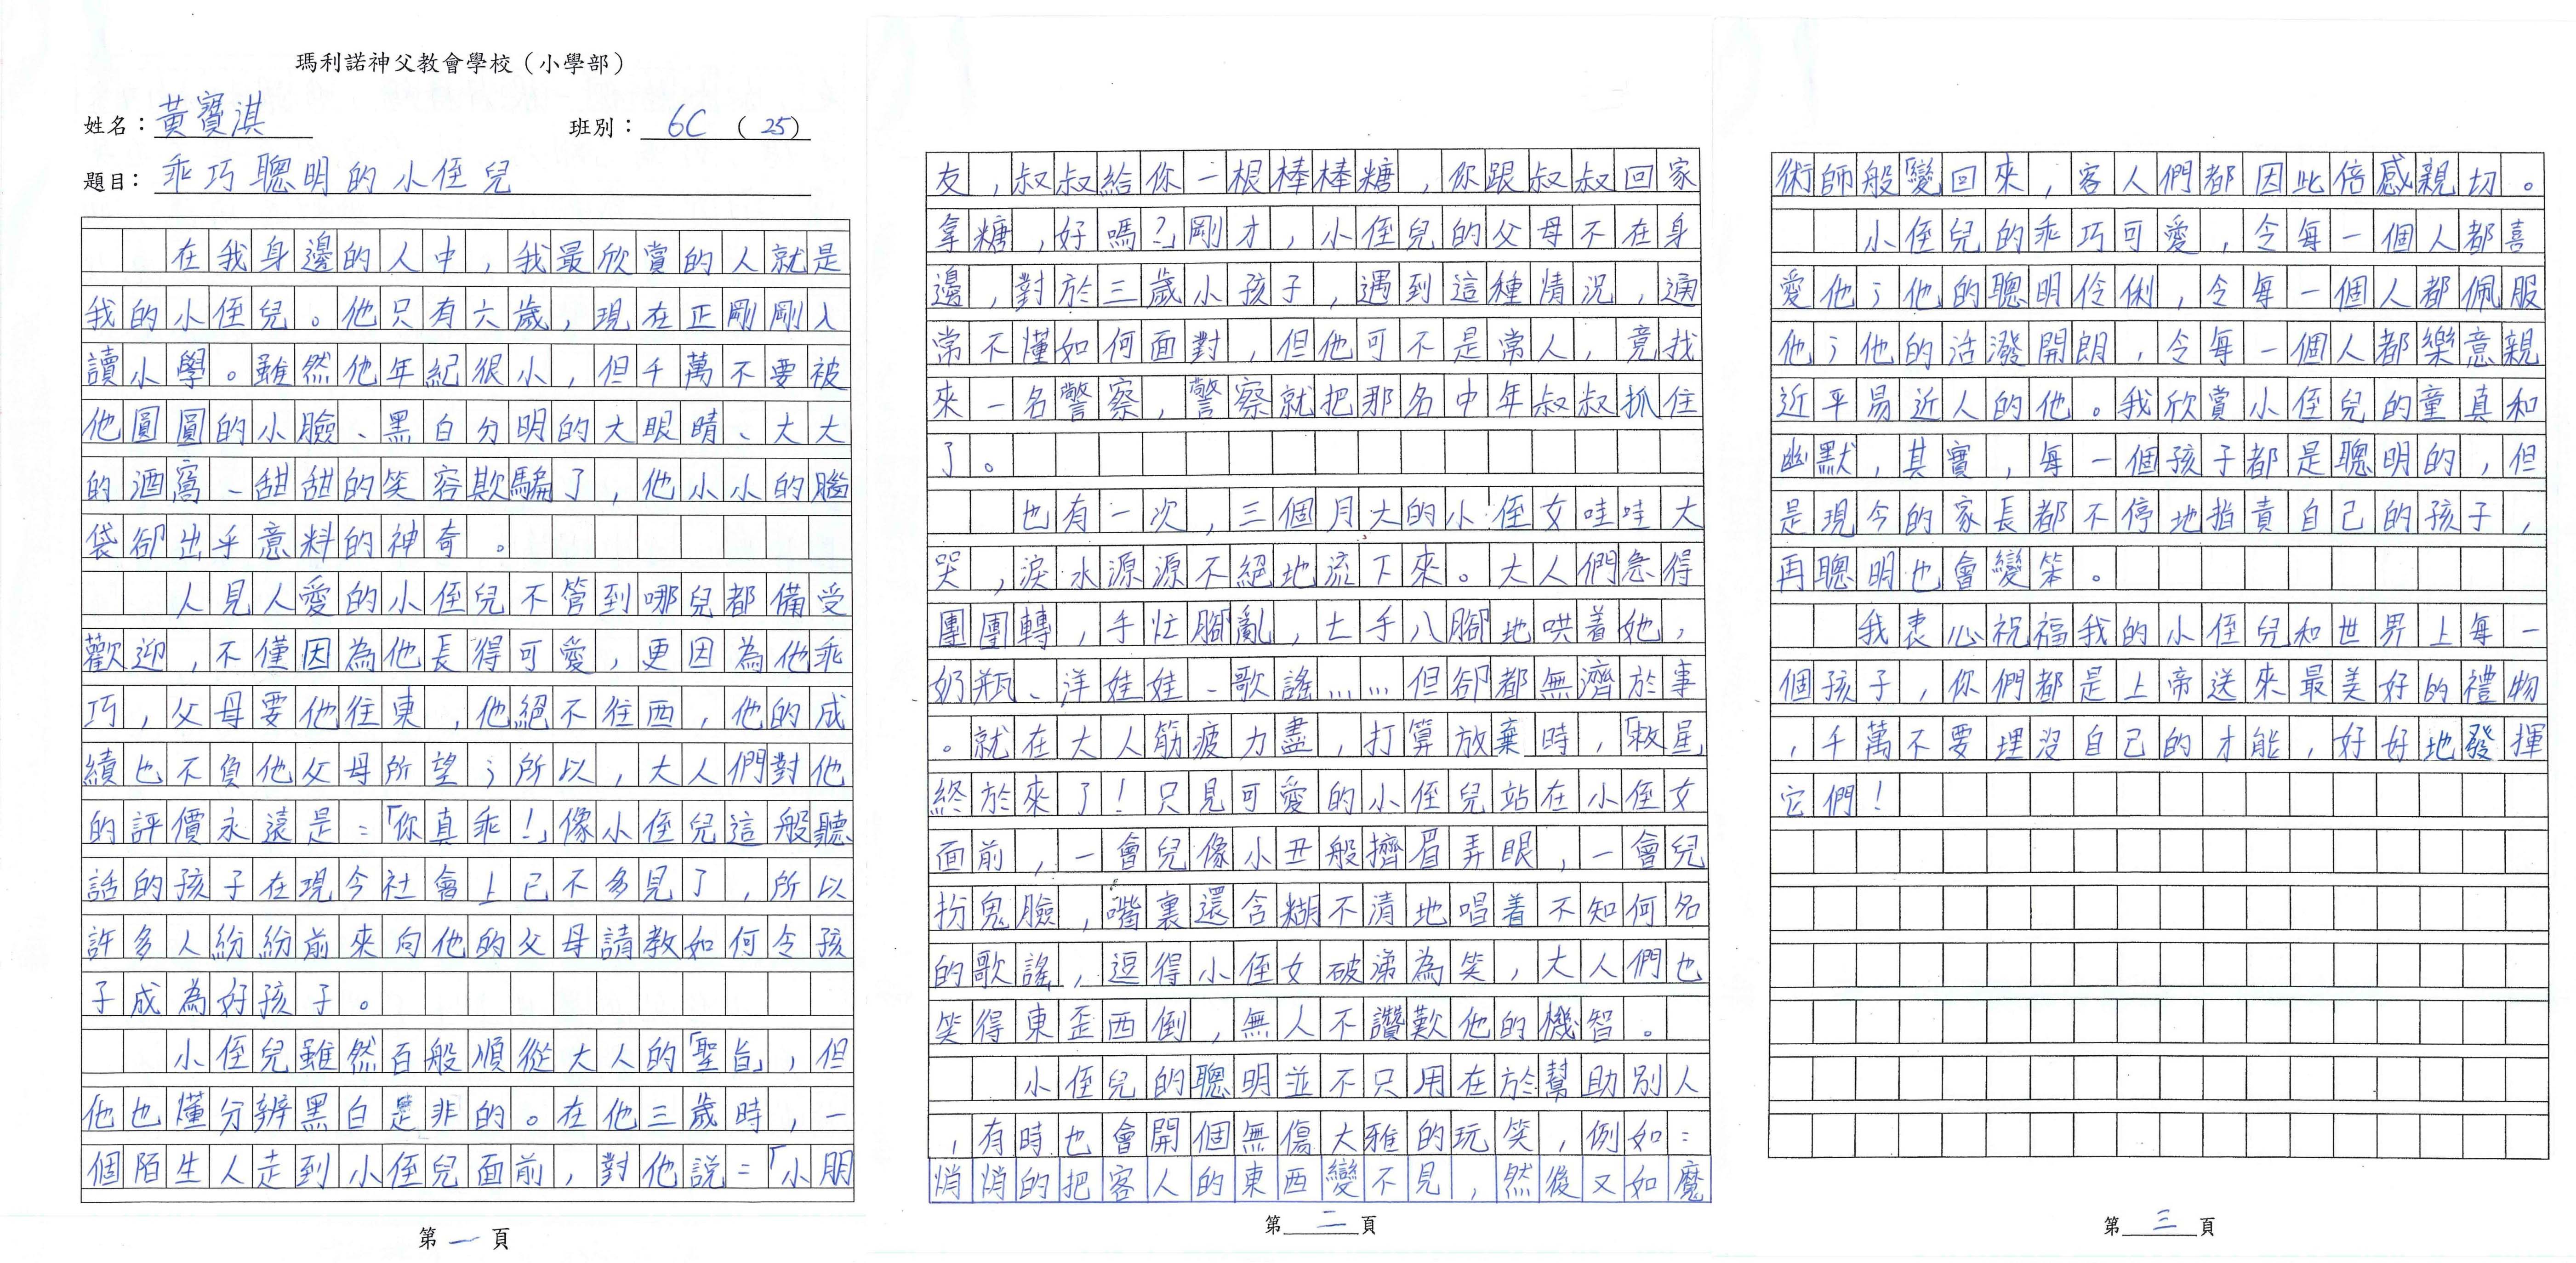 瑪利諾神父教會學校（小學部）
姓名：黃寶淇 班別：6C (25)
題目：乖巧聰明的小侄兒
在我身邊的人中，我最欣賞的人就是
我的小侄兒。他只有六歲，現在正剛剛入
讀小學。雖然他年紀很小，但千萬不要被
他圓圓的小臉、黑白分明的大眼睛、大大
的酒窩、甜甜的笑容欺騙了，他小小的腦
袋卻出乎意料的神奇。
人見人愛的小侄兒不管到哪兒都備受
歡迎，不僅因為他長得可愛，更因為他乖
巧，父母要他往東，他絕不往西，他的成
績也不負他父母所望；所以，大人們對他
的評價永遠是：「你真乖！」像小侄兒這般聽
話的孩子在現今社會上已不多見了，所以
許多人紛紛前來向他的父母請教如何令孩
子成為好孩子。
小侄兒雖然百般順從大人的「聖旨」，但
他也懂分辨黑白是非的。在他三歲時，一
個陌生人走到小侄兒面前，對他說：「小朋
第一頁
友，叔叔給你一根棒棒糖，你跟叔叔回家
拿糖，好嗎？」剛才，小侄兒的父母不在身
邊，對於三歲小孩子，遇到這種情況，通
常不懂如何面對，但他可不是常人，竟找
來一名警察，警察就把那名中年叔叔抓住
了。
也有一次，三個月大的小侄女哇哇大
哭，淚水源源不絕地流下來。大人們急得
團團轉，手忙腳亂，七手八腳地哄着她，
奶瓶、洋娃娃、歌謠……但卻都無濟於事
。就在大人筋疲力盡，打算放棄時，「救星」
終於來了！只見可愛的小侄兒站在小侄女
面前，一會兒像小丑般擠眉弄眼，一會兒
扮鬼臉，嘴裏還含糊不清地唱着不知何名
的歌謠，逗得小侄女破涕為笑，大人們也
笑得東歪西倒，無人不讚歎他的機智。
小侄兒的聰明並不只用在於幫助別人
，有時也會開個無傷大雅的玩笑，例如：
悄悄的把客人的東西變不見，然後又如魔
第二頁
術師般變回來，客人們都因此倍感親切。
小侄兒的乖巧可愛，令每一個人都喜
愛他；他的聰明伶俐，令每一個人都佩服
他；他的活潑開朗，令每一個人都樂意親
近平易近人的他。我欣賞小侄兒的童真和
幽默，其實，每一個孩子都是聰明的，但
是現今的家長都不停地指責自己的孩子，
再聰明也會變笨。
我衷心祝福我的小侄兒和世界上每一
個孩子，你們都是上帝送來最美好的禮物
，千萬不要埋沒自己的才能，好好地發揮
它們！
第三頁